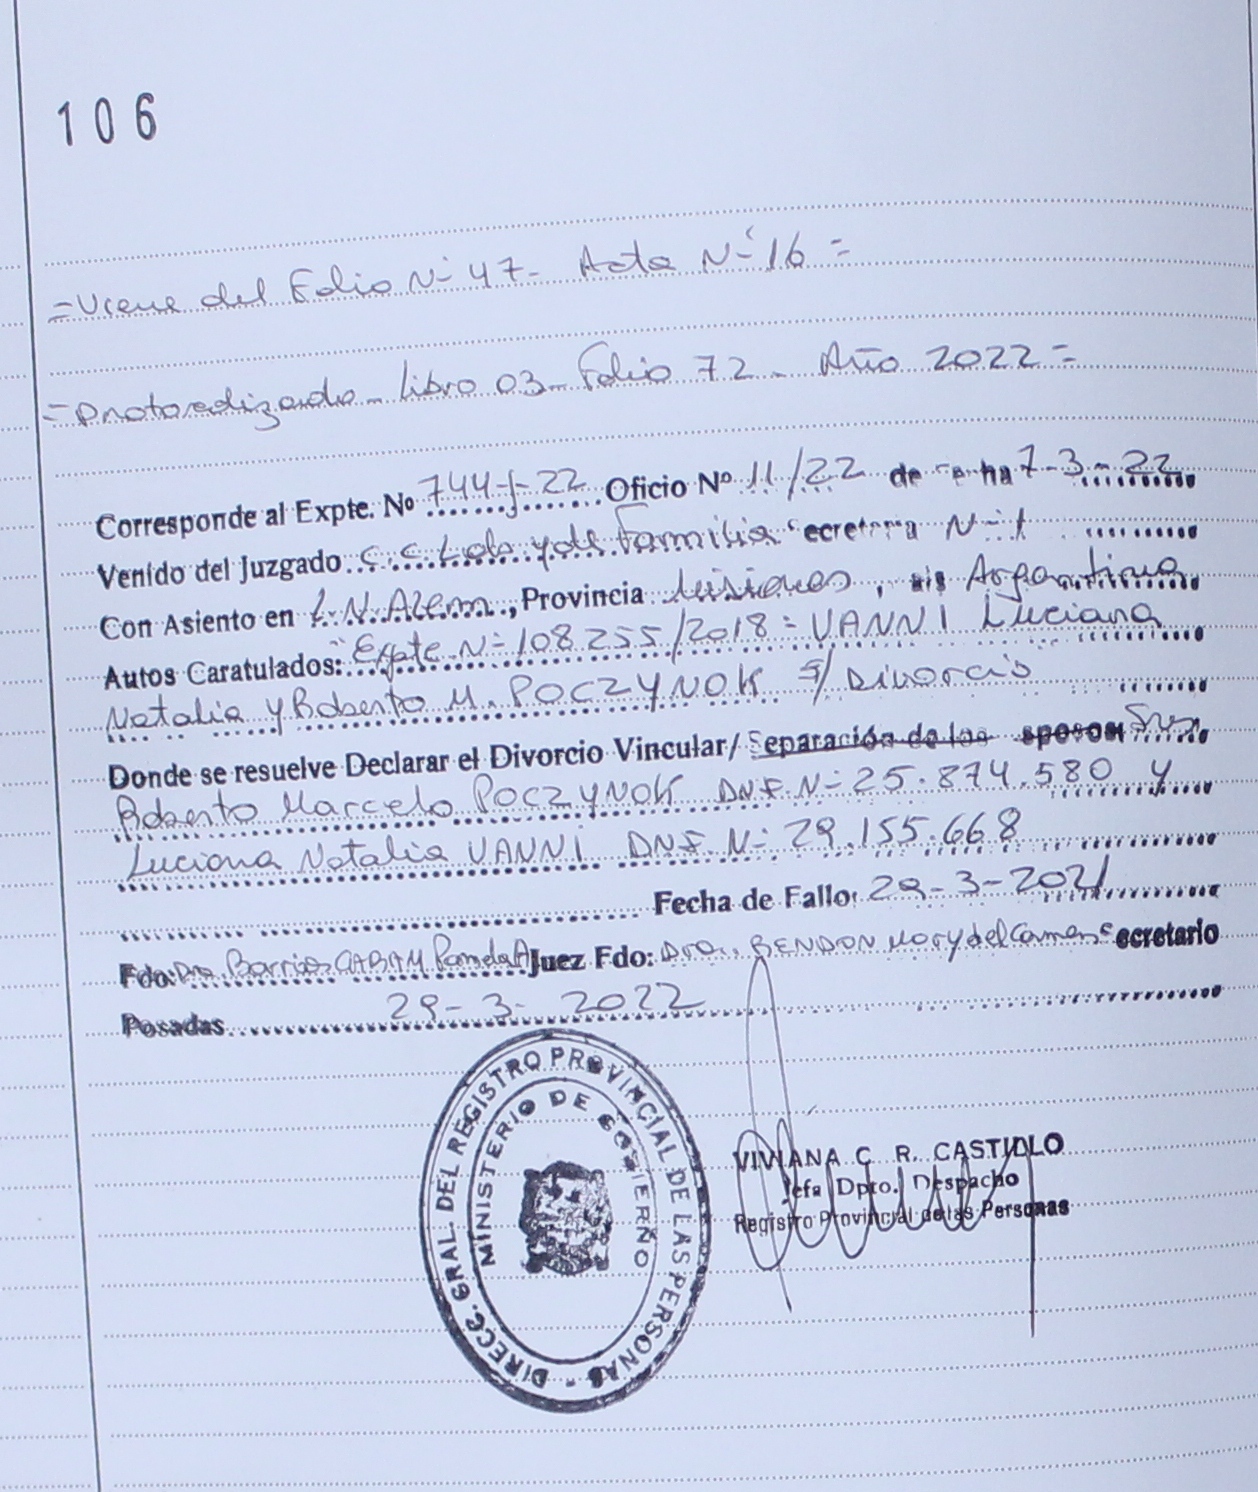 106
=Viene del Folio N- 47- Acta N- 16 =
=Protocolizado- Libro 03- Folio 72- Año 2022=
Corresponde al Expte. Nº 744-J-22 Oficio Nº 11/22 de fecha 7-3-22
Venido del Juzgado C. C. Lab y de Familia Secretaria N- 1
Con Asiento en L. N. Alem, Provincia Misiones, Argentina
Autos Caratulados: "Expte N- 108255/2018= VANNI Luciana
Natalia y Roberto M. POCZYNOK S/ Divorcio
Donde se resuelve Declarar el Divorcio Vincular/ Separación de los esposos Sres
Roberto Marcelo POCZYNOK DNI. N- 25.874.580 y
Luciana Natalia VANNI DNI. N- 29.155.668
Fecha de Fallo: 29-3-2021
Fdo: Dra. Barrios Pamela A Juez Fdo: Dra. BENDON Mary del Carmen Secretario
Posadas 29-3-2022
DIRECC. GRAL. DEL REGISTRO PROVINCIAL DE LAS PERSONAS -
MINISTERIO DE GOBIERNO
VIVIANA C. R. CASTILLO
Jefa Dpto. Despacho
Registro Provincial de las Personas